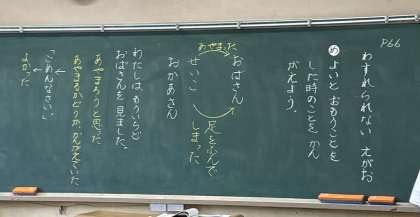 P66
わすれられない えがお
め よいと おもうことを
した時のことを かん
がえよう。
おばさん
あやまった
せいこ
足をふんで
しまった
おかあさん
わたしは、もういちど
おばさんを 見ました。
あやまろうと思った
あやまるかどうか、かんがえていた
「ごめんなさい。」
よかった